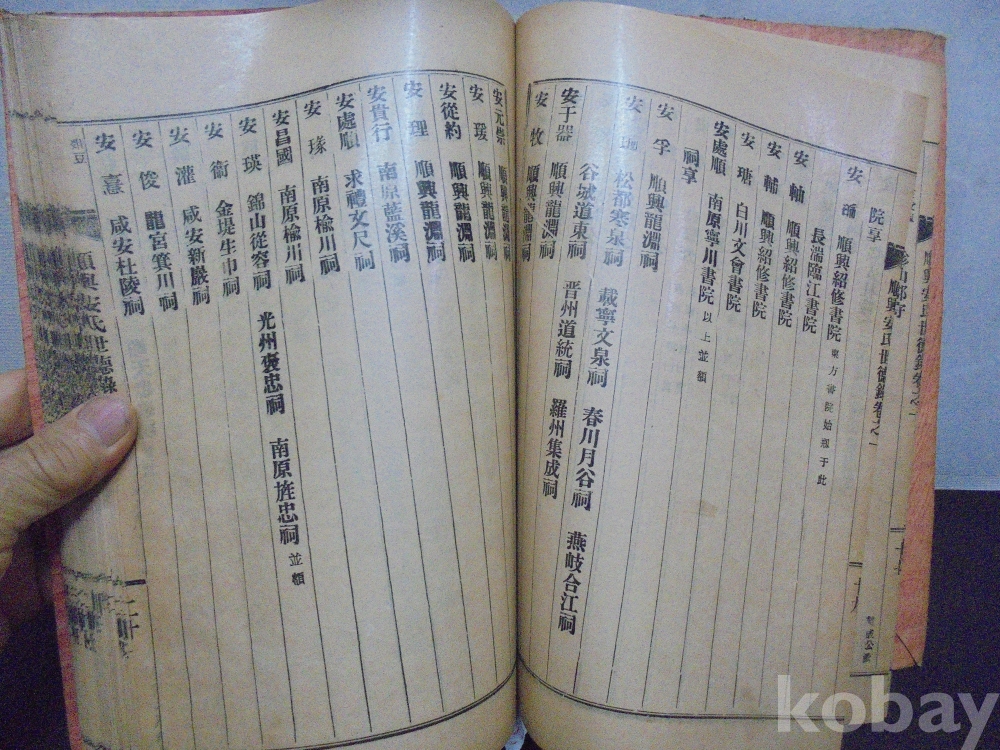 順興安氏世德錄卷之一
院享
順興紹修書院 東方書院始創于此
長湍臨江書院
安軸 順興紹修書院
安輔 順興紹修書院
安瑭 白川文會書院
安處順 南原寧川書院 以上並額
祠享
安孚 順興龍淵祠
松都寒泉祠 載寧文泉祠 春川月谷祠 燕岐合江祠
谷城道東祠 晋州道統祠 羅州集成祠
安于器 順興龍淵祠
安牧 順興龍淵祠
安元崇 順興龍淵祠
安瑗 順興龍淵祠
安從約 順興龍淵祠
安理 順興龍淵祠
安貴行 南原藍溪祠
安處順 求禮文尺祠
安瑑 南原楡川祠
安昌國 南原楡川祠
安瑛 錦山從容祠 光州褒忠祠 南原旌忠祠 並額
安衢 金堤生巾祠
安灌 咸安新巖祠
安俊 龍宮箕川祠
安憙 咸安杜陵祠
順興安氏世德錄
kobay